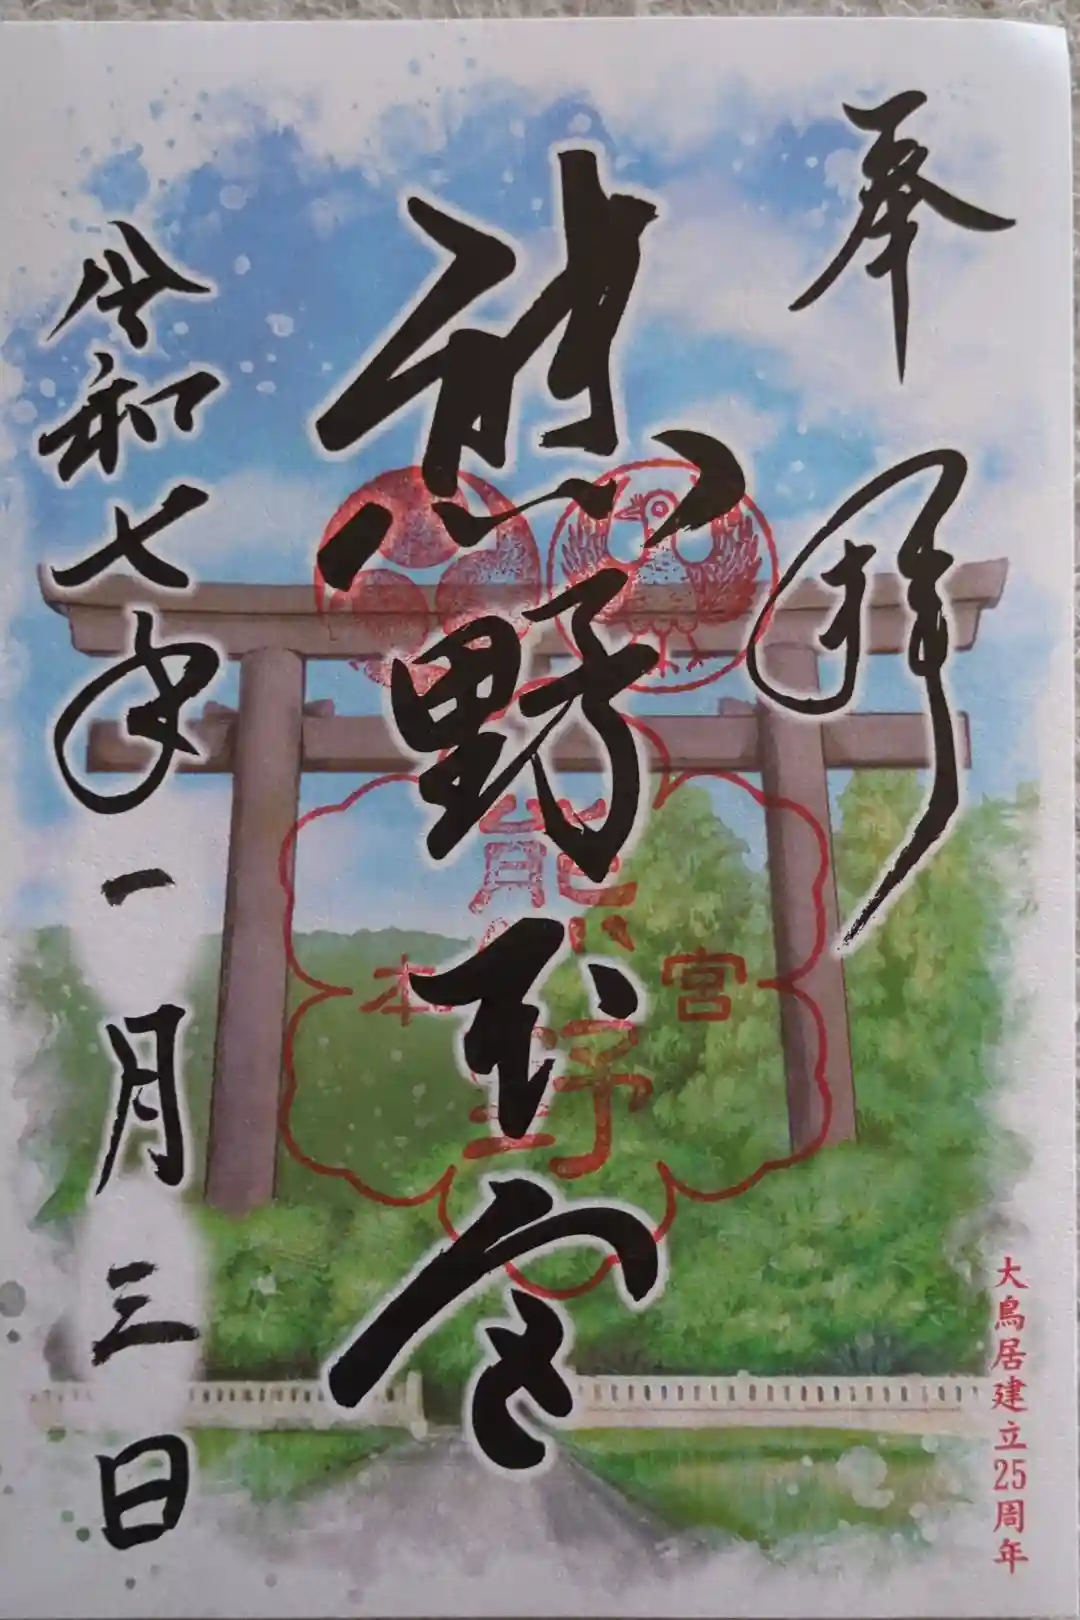 奉拝
熊野本宮
令和七年一月三日
熊野
本宮
大鳥居建立25周年